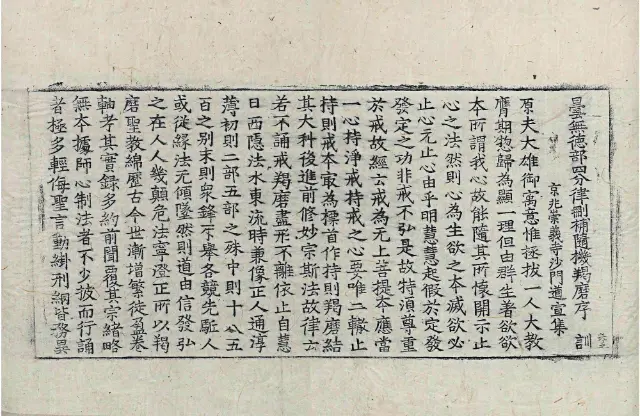 曇無德部四分律刪補隨機羯磨序 訓
京兆崇義寺沙門道宣集
原夫大雄御寓意惟拯拔一人大教
膺期惣歸為顯一理但由群生著欲欲
本所謂我心故能隨其所懷開示止
心之法然則心為生欲之本滅欲必
止心元止心由乎明慧慧起假於定發
發定之功非戒不弘是故特須尊重
於戒故經云戒為无上菩提本應當
一心持淨戒持戒之心要唯二轍止
持則戒本㝡為標首作持則羯磨結
其大科後進前修妙宗斯法故律云
若不誦戒羯磨盡形不離依止自慧
日西隱法水東流時兼像正人通淳
薄初則二部五部之殊中則十八五
百之别末則衆鋒不舉各競先駈人
或從緣法无傾墜然則道由信發弘
之在人人幾顛危法寧澄正所以羯
磨聖教綿歷古今世漸增繁徒盈卷
軸考其實錄多約前聞覆其宗緒略
無本據師心制法者不少披而行誦
者極多輕侮聖言動絓刑綱皆務異